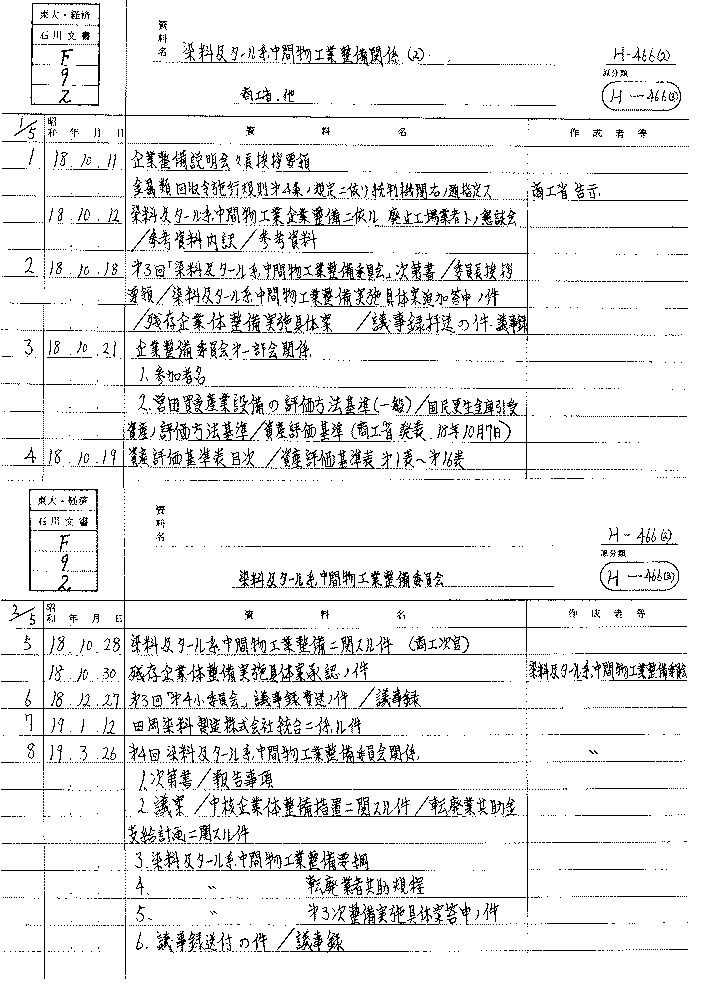 東大・経済
石川文書
F
9
2
資料名
染料及タール系中間物工業整備関係 (2)
商工省.他
H-466(2)
原分類
H-466(2)
1/5
昭和 年 月 日
資 料 名
作成者等
1 18.10.11 企業整備説明会々長挨拶要領
金属類回収令施行規則第4条ノ規定ニ依リ統制機関左ノ通指定ス 商工省告示
18.10.12 染料及タール系中間物工業企業整備ニ依ル廃止工場業者トノ懇談会
/参考資料内訳/参考資料
2 18.10.18 第3回「染料及タール系中間物工業整備委員会」次第書/委員長挨拶
要領/染料及タール系中間物工業整備実施具体案追加答申ノ件
/残存企業体整備実施具体案 /議事録拝送の件.議事録
3 18.10.21 企業整備委員会第一部会関係.
1.参加者名
2.営団買資産業設備の評価方法基準(一般)/国民更生金庫引受
資産ノ評価方法基準/資産評価基準(商工省発表.18年10月7日)
4 18.10.19 資産評価基準表目次 /資産評価基準表 第1表〜第16表
東大・経済
石川文書
F
9
2
資料名
染料及タール系中間物工業整備委員会
H-466(2)
原分類
H-466(2)
2/5
昭和 年 月 日
資 料 名
作成者等
5 18.10.28 染料及タール系中間物工業整備ニ関スル件 (商工次官)
18.10.30 残存企業体整備実施具体案承認ノ件 染料及タール系中間物工業整備委員会
6 18.12.27 第3回「第4小委員会」議事録送ノ件 /議事録
7 19.1.12 田岡染料製造株式会社統合ニ係ル件
8 19.3.26 第4回染料及タール系中間物工業整備委員会関係. 〃
1.次第書/報告事項
2.議案 /中核企業体整備措置ニ関スル件/転廃業共助金
支給計画ニ関スル件
3.染料及タール系中間物工業整備要綱
4. 〃 転廃業者共助規程
5. 〃 第3次整備実施具体案答申ノ件
6.議事録送付の件 /議事録